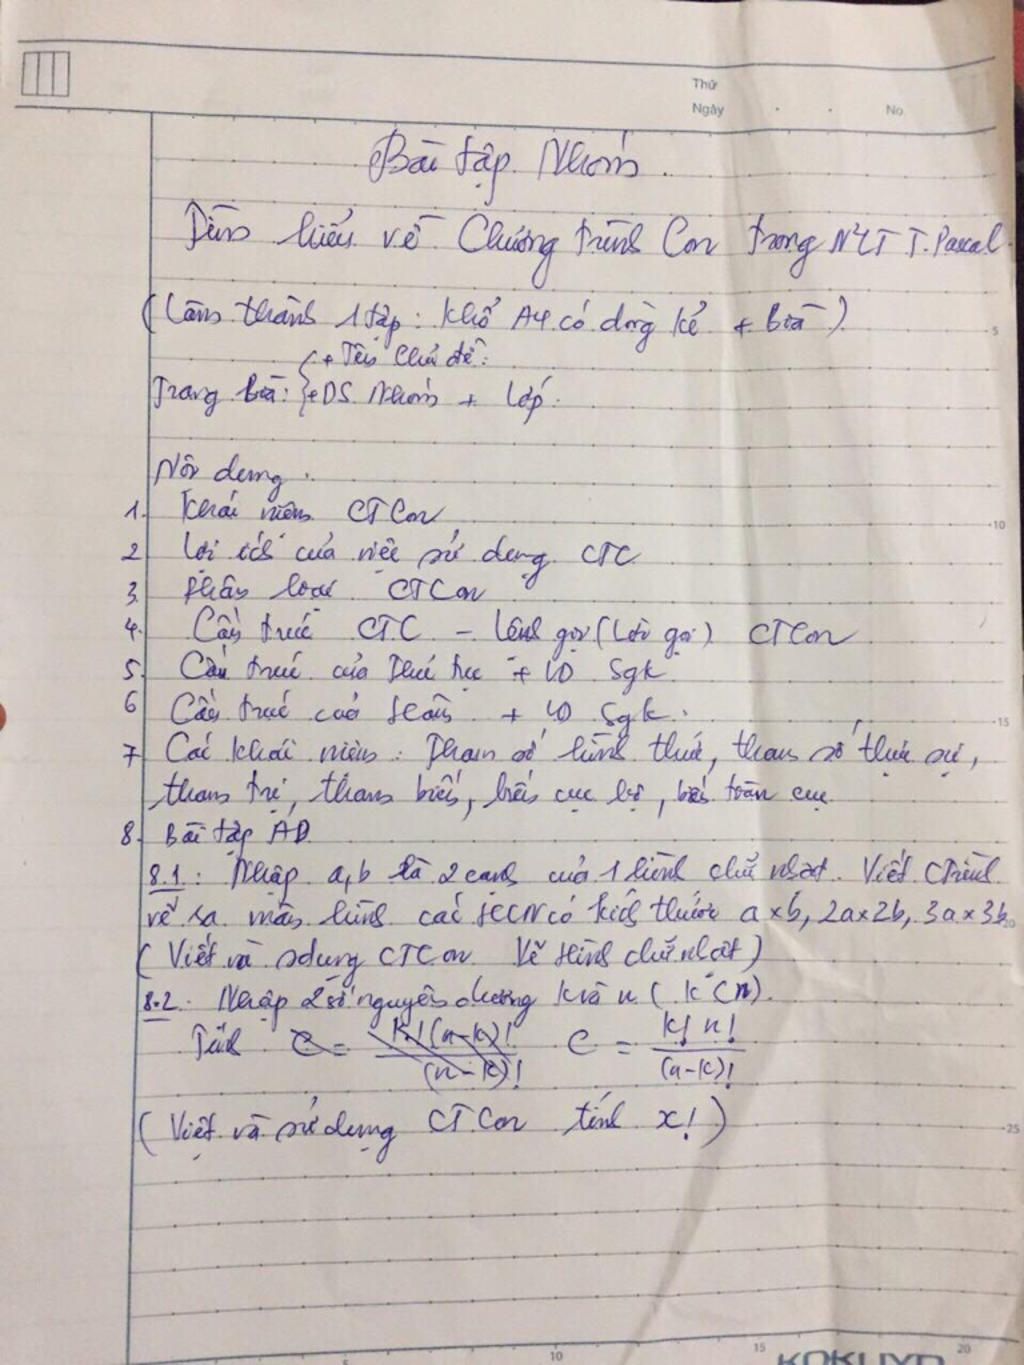 Thứ
Ngày
No.
Bài tập Nhóm.
Tìm hiểu về Chương trình Con trong NNLT T. Pascal.
(Làm thành 1 tập: Khổ A4 có dòng kẻ + bìa)
+ Tên Chủ đề.
Trang bìa: + DS Nhóm + Lớp.
Nội dung.
1. Khái niệm CTCon
2 Lợi ích của việc sử dụng CTC
3. Phân loại CTCon
4. Cấu trúc CTC - Lệnh gọi (Lời gọi) CTCon
5. Cấu trúc của Thủ tục + VD Sgk.
6 Cấu trúc của Hàm + VD Sgk.
7 Các khái niệm: Tham số hình thức, tham số thực sự,
tham trị, tham biến, biến cục bộ, biến toàn cục
8. Bài tập AD
8.1: Nhập a,b là 2 cạnh của 1 hình chữ nhật. Viết CTrình
vẽ ra màn hình các HCN có kích thước a x b, 2a x 2b, 3a x 3b
(Viết và sdụng CTCon Vẽ Hình chữ nhật)
8.2. Nhập 2 số nguyên dương k và n (k<n).
Tính C = k!(n-k)! / (n-k)! C = k! n! / (n-k)!
(Viết và sử dụng CTCon tính x!)
5
10
15
20
25
5
10
15
20
KOKUYO